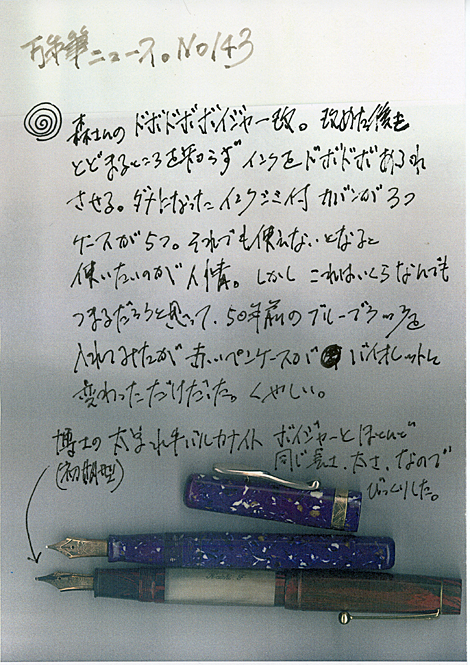 万年筆ニュース。No143
森さんの ドボドボボイジャー改。改めた後も
とどまるところを知らず インクをドボドボあふれ
させる。ダメになった インクジミ付 カバンが3つ
ケースが5つ。それでも使えないとなると
使いたいのが人情。しかし これはいくらなんでも
つまるだろうと思って、50年前のブルーブラックを
入れてみたが 赤いペンケースが バイオレットに
変わっただけだった。くやしい。
博士の 太まきれ バルカナイト ボイジャーとほとんど
(初期型) 同じ長さ、太さ、なので
びっくりした。